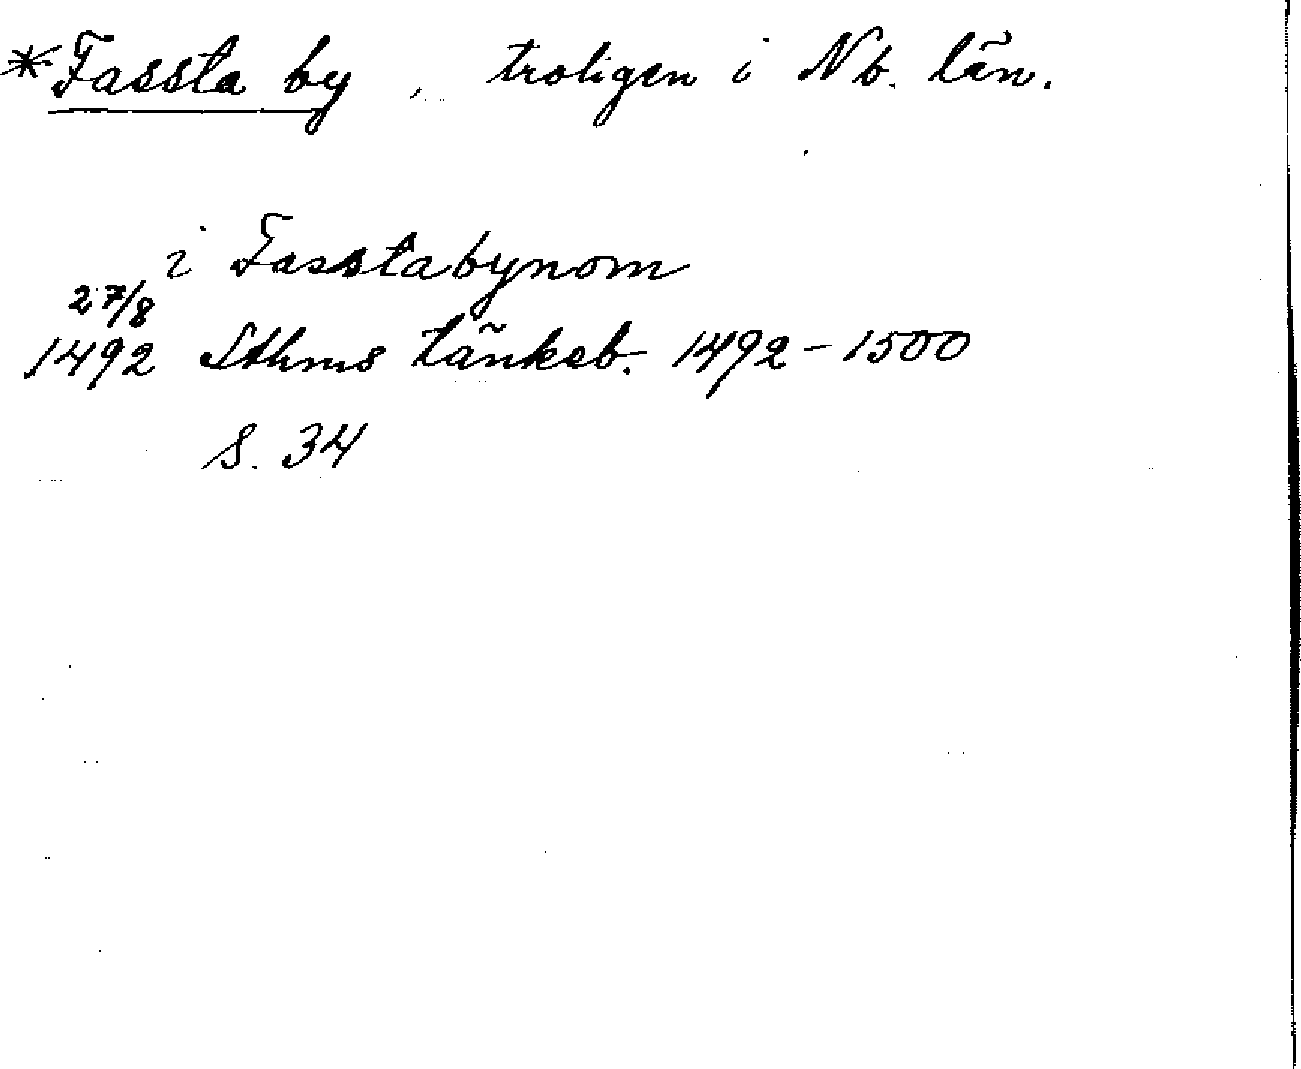 *Fassta by, troligen i Nb. län.
i Fasstabynom
27/8
1492 Sthms tänkeb. 1492-1500
s. 34